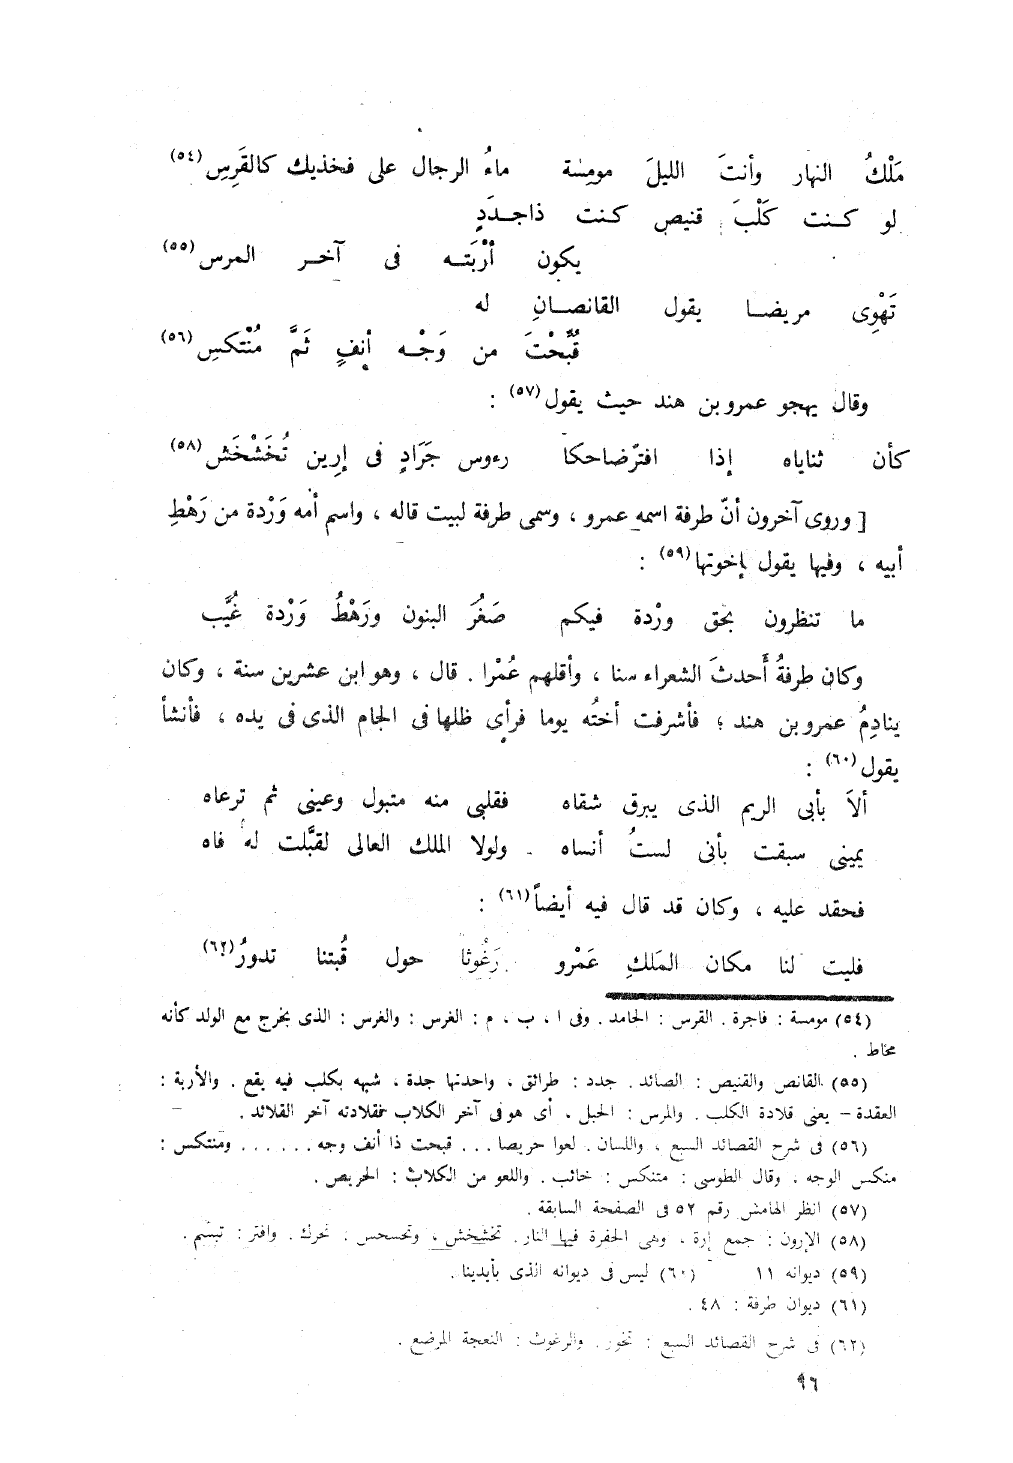 مَلْكُ النهار وأنتَ الليلَ مومِسة ماءُ الرجال على فخذيك كالقَرِسِ(٥٤)
لو كـنت كَلْبَ قنيص كـنت ذاجـدَدٍ
يكون أرْبَتـه فى آخـر المرس(٥٥)
تَهْوِى مريضـا يقول القانصـانِ له
قُبِّحْتَ من وَجْـه أنِفٍ ثَمَّ مُنْتكسِ(٥٦)
وقال يهجو عمرو بن هند حيث يقول(٥٧) :
كأن ثناياه إذا افترّ ضاحكا رءوس جَرَادٍ فى إرِين تُخَشْخَش(٥٨)
[ وروى آخرون أنّ طرفة اسمه عمرو ، وسمى طرفة لبيت قاله ، واسم أمه وَرْدة من رَهْطِ
أبيه ، وفيها يقول لإخوتها(٥٩) :
ما تنظرون بحق ورْدة فيكم صَغُرَ البنون ورَهْطُ وَرْدة غُيَّب
وكان طرفةُ أَحدثَ الشعراء سنا ، وأقلهم عُمْرا . قال ، وهو ابن عشرين سنة ، وكان
ينادِمُ عمرو بن هند ؛ فأشرفت أختُه يوما فرأى ظلها فى الجام الذى فى يده ، فأنشأ
يقول(٦٠) :
ألاَ بأبى الريم الذى يبرق شقاه فقلبى منه متبول وعينى ثم ترعاه
يمينى سبقت بأنى لستُ أنساه . ولولا الملك العالى لقبَّلت له فاه
فحقد عليه ، وكان قد قال فيه أيضاً(٦١) :
فليت لنا مكان المَلكِ عَمْرو رَغُوثا حول قُبتنا تدورُ(٦٢)
(٥٤) مومسة : فاجرة . القرس : الجامد . وفى ا ، ب ، م : الغرس : والغرس : الذى يخرج مع الولد كأنه
مخاط .
(٥٥) القانص والقنيص : الصائد . جدد : طرائق ، واحدتها جدة ، شبهه بكلب فيه بقع . والأربة :
العقدة – يعنى قلادة الكلب . والمرس : الحبل ، أى هو فى آخر الكلاب فقلادته آخر القلائد .
(٥٦) فى شرح القصائد السبع ، واللسان . لعوا حريصا . . . قبحت ذا أنف وجه . . . . . . ومنتكس :
منكس الوجه ، وقال الطوسى : متنكس : خائب . واللعو من الكلاب : الحريص .
(٥٧) انظر الهامش رقم ٥٢ فى الصفحة السابقة .
(٥٨) الإرون : جمع إرة ، وهى الحفرة فيها النار . تخشخش ، وتحسحس : تحرك . وافتر : تبسم .
(٥٩) ديوانه ١١ (٦٠) ليس فى ديوانه الذى بأيدينا .
(٦١) ديوان طرفة : ٤٨ .
(٦٢) فى شرح القصائد السبع : تخور . والرغوث : النعجة المرضع .
٩٦